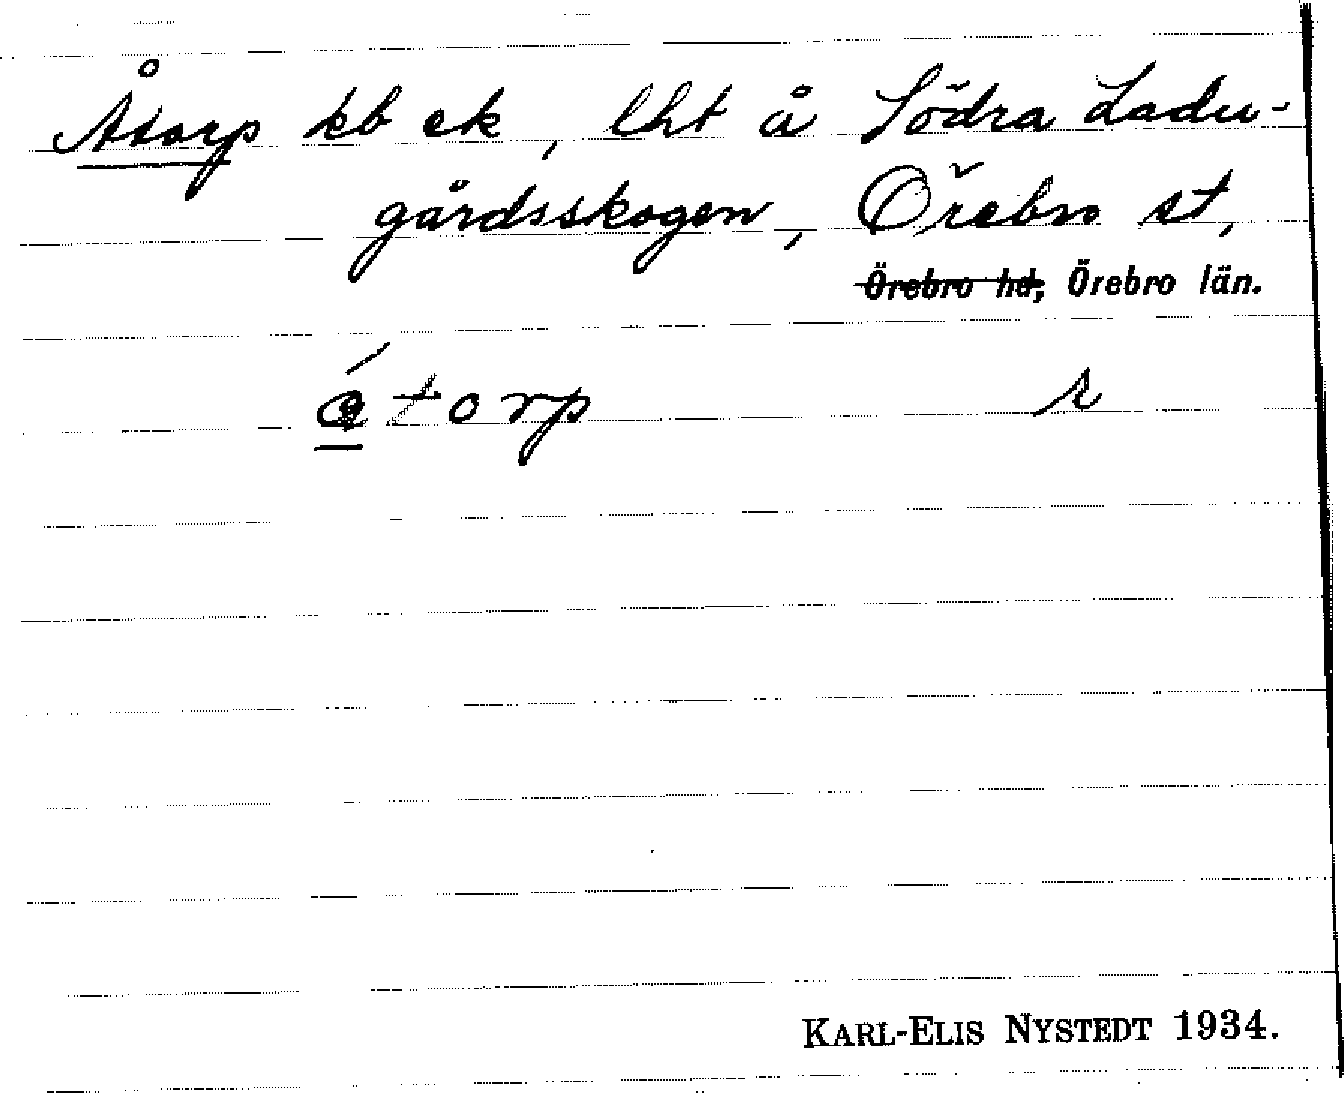 Åtorp kb ek, lht å Södra Ladu-
gårdsskogen, Örebro st,
Örebro hd, Örebro län.
ǻtorp s
KARL-ELIS NYSTEDT 1934.